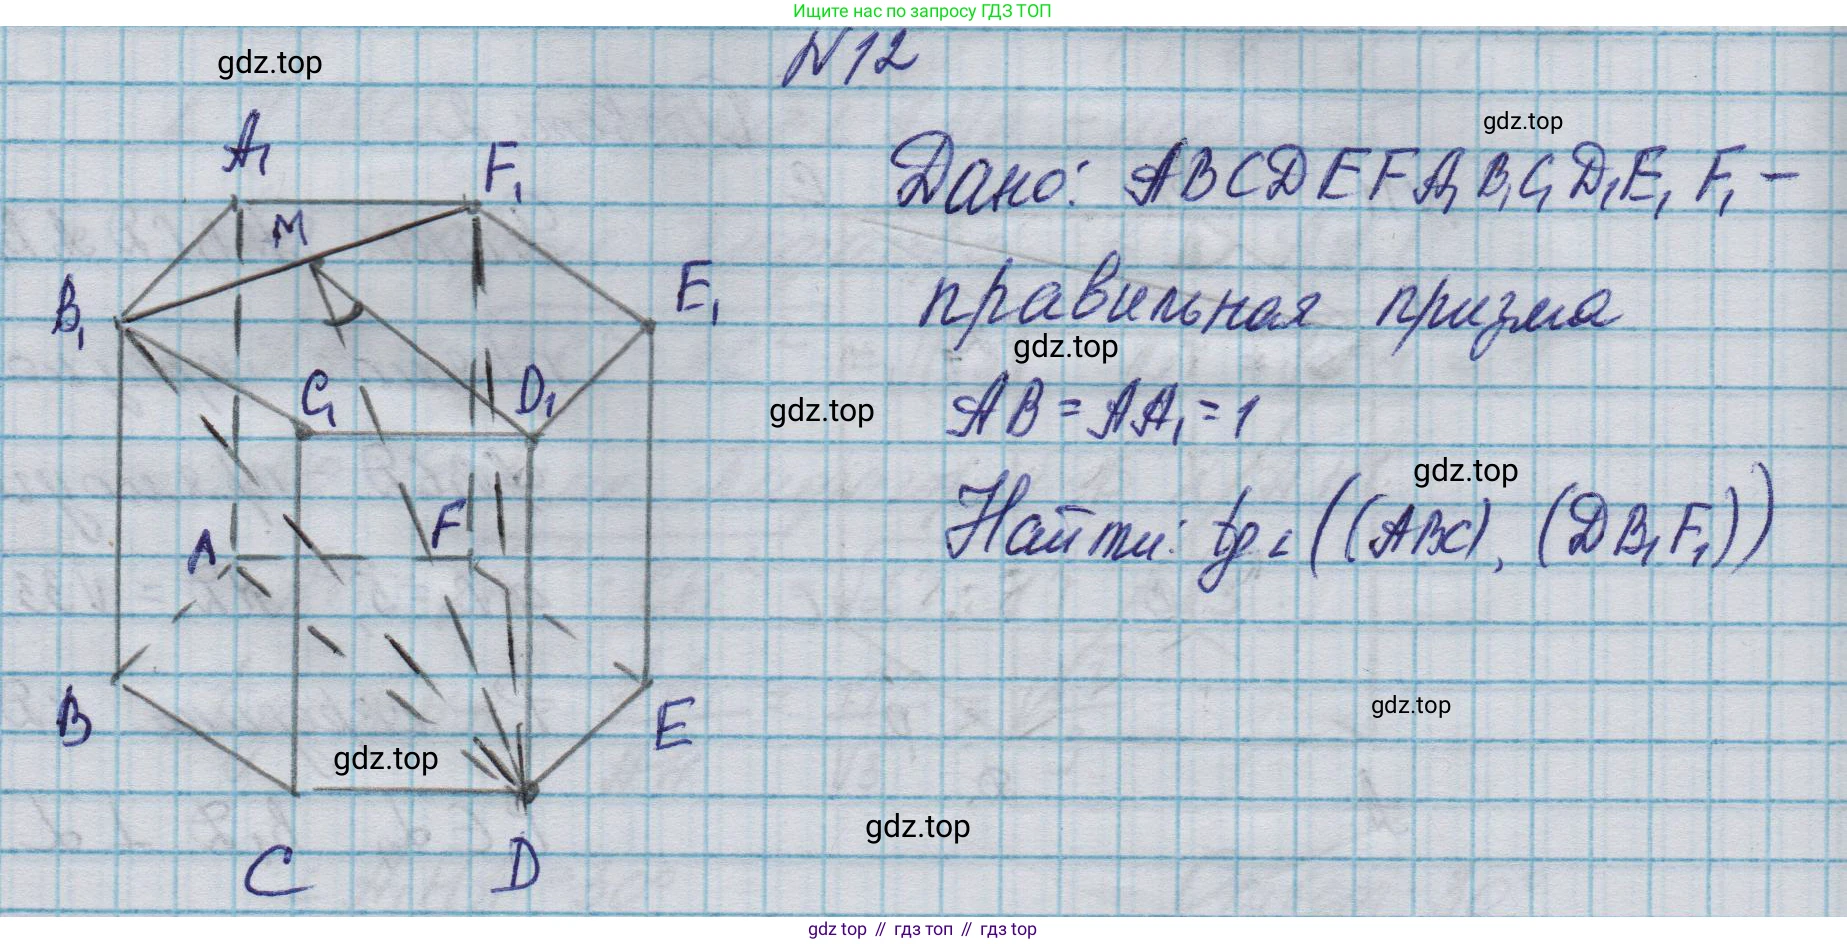 Ищите нас по запросу ГДЗ ТОП
gdz.top
N12
gdz.top
A₁
F₁
Дано: ABCDEFA₁B₁C₁D₁E₁F₁ –
M
B₁
E₁
правильная призма
gdz.top
C₁
D₁
gdz.top
AB = AA₁ = 1
gdz.top
A
F
Найти: tg∠((ABC), (DB₁F₁))
B
E
gdz.top
gdz.top
gdz.top
C
D
gdz top // гдз топ // gdz top